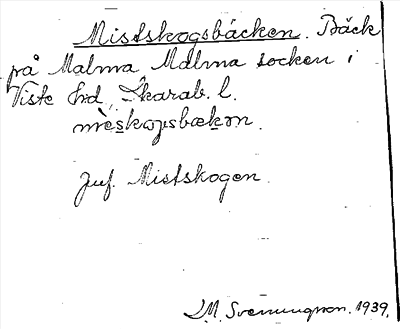 Mistskogsbäcken. Bäck
på Malma Malma socken i
Viste hd, Skarab. l.
mèskogsbækɷn.
Juf. Mistskogen.
M. Svenungson. 1939.